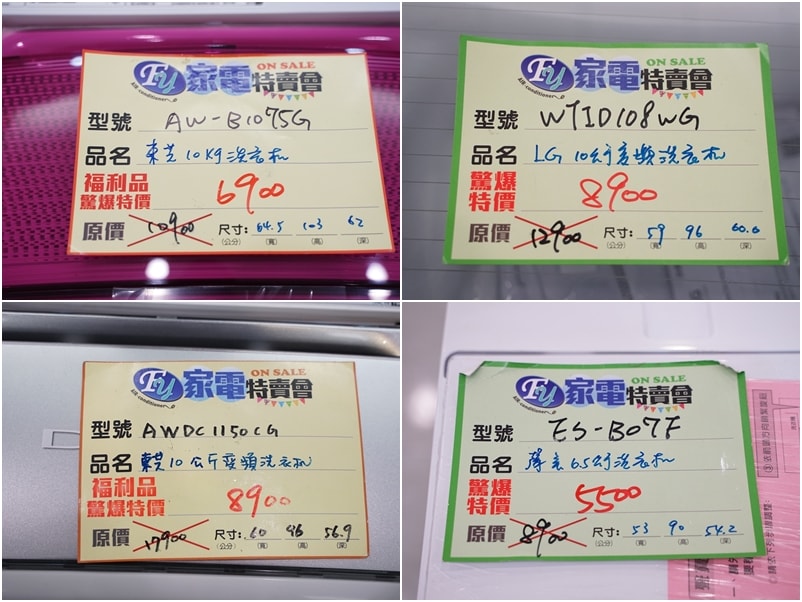 FU 家電特賣會 ON SALE
AIR conditioner
型號 AW-B1075G
品名 東芝10KG洗衣机
福利品
驚爆特價 6900
原價 10900 尺寸: 64.5 103 62
(公分) (寬) (高) (深)
FU 家電特賣會 ON SALE
AIR conditioner
型號 WTID108WG
品名 LG 10公斤变頻洗衣机
驚爆
特價 8900
原價 12900 尺寸: 59 96 60.6
(公分) (寬) (高) (深)
FU 家電特賣會 ON SALE
AIR conditioner
型號 AWDC1150CG
品名 東芝10公斤变頻洗衣机
福利品
驚爆特價 8900
原價 17900 尺寸: 60 96 56.9
(公分) (寬) (高) (深)
FU 家電特賣會 ON SALE
AIR conditioner
型號 ES-B07F
品名 聲宝6.5公斤洗衣机
驚爆
特價 5500
原價 8900 尺寸: 53 90 54.2
(公分) (寬) (高) (深)